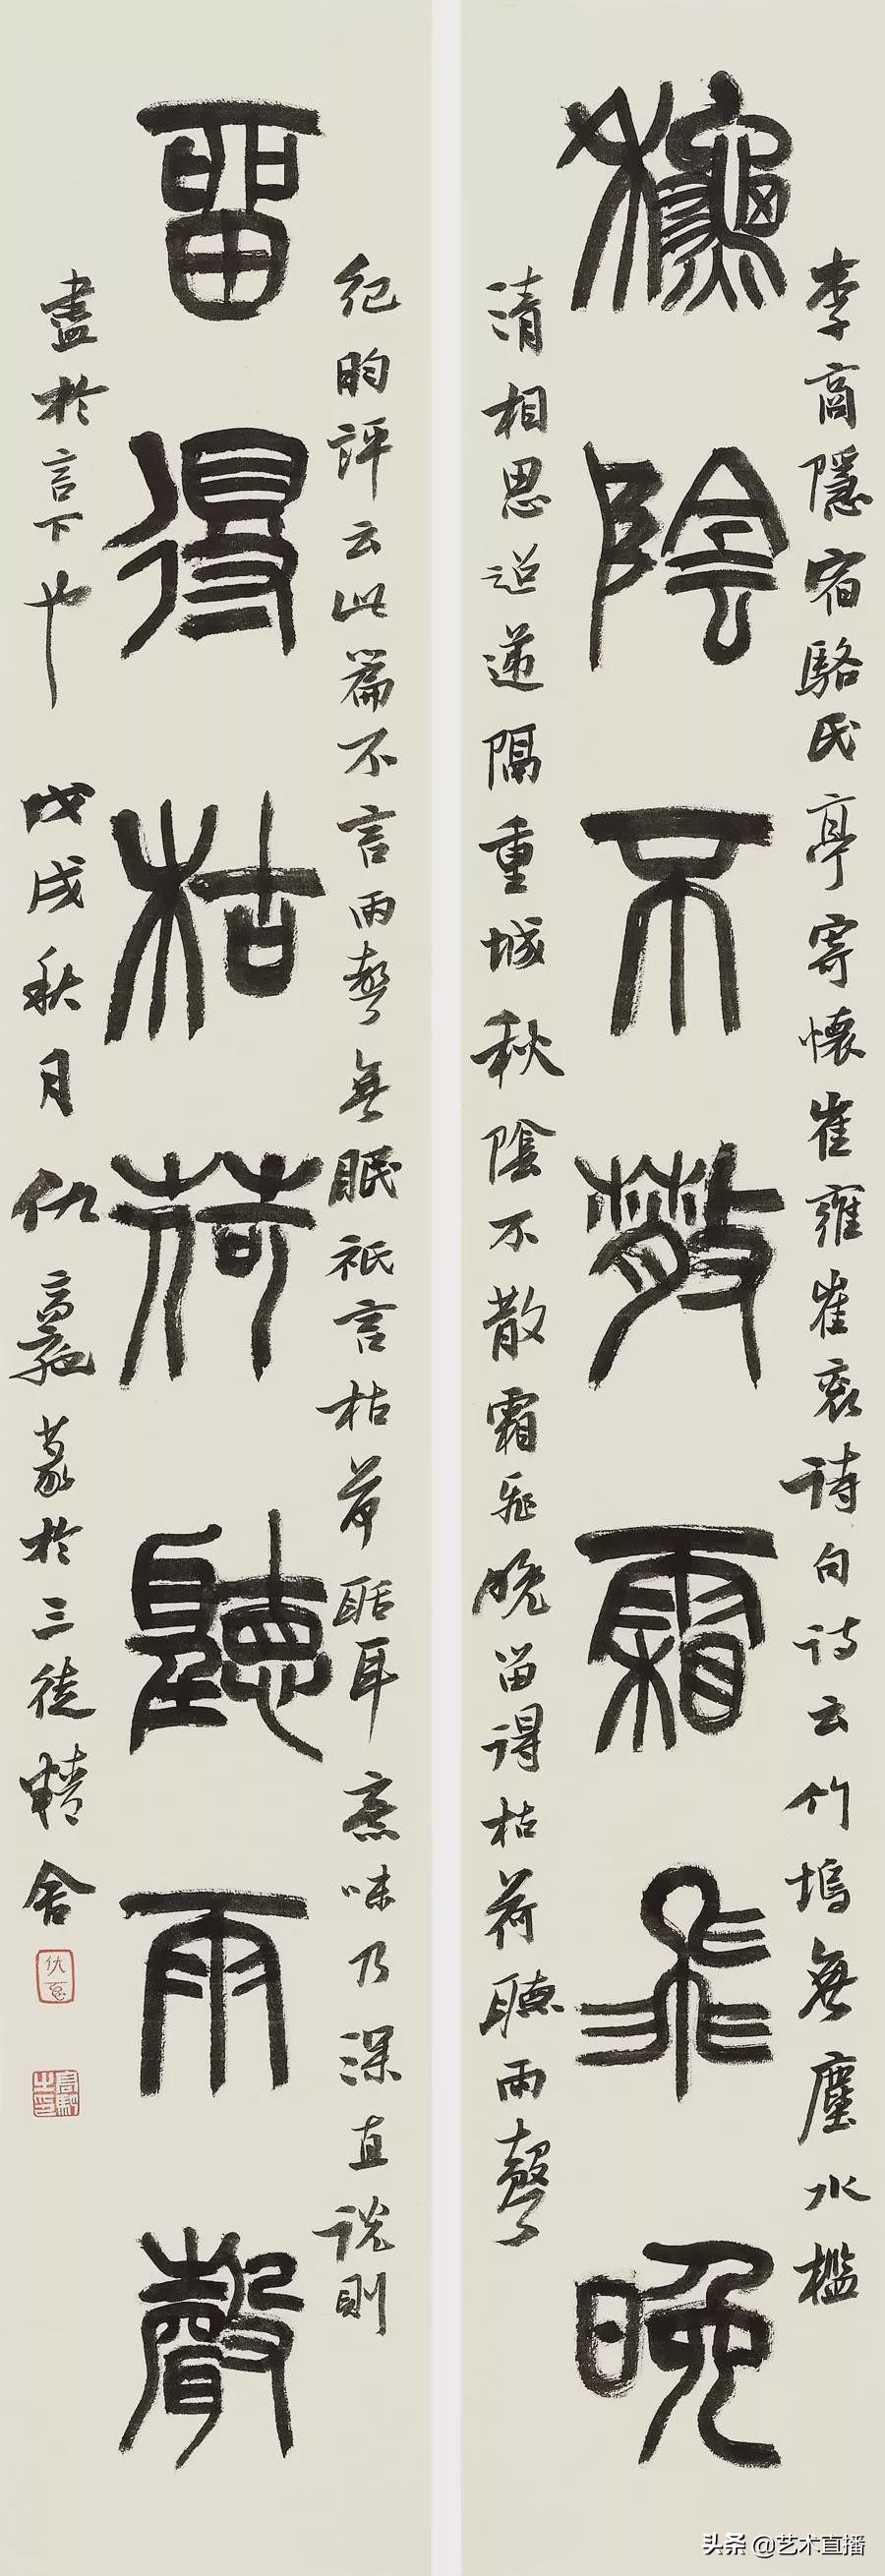 秋陰不散霜飛晚
李商隱宿駱氏亭寄懷崔雍崔袞詩句詩云竹塢無塵水檻
清相思迢遞隔重城秋陰不散霜飛晚留得枯荷聽雨聲
留得枯荷聽雨聲
紀昀評云此篇不言雨聲無眠祇言枯荷聒耳意味乃深直説則
盡於言下也 戊戌秋月仇高馳篆於三徒精舍
頭條 @艺术直播